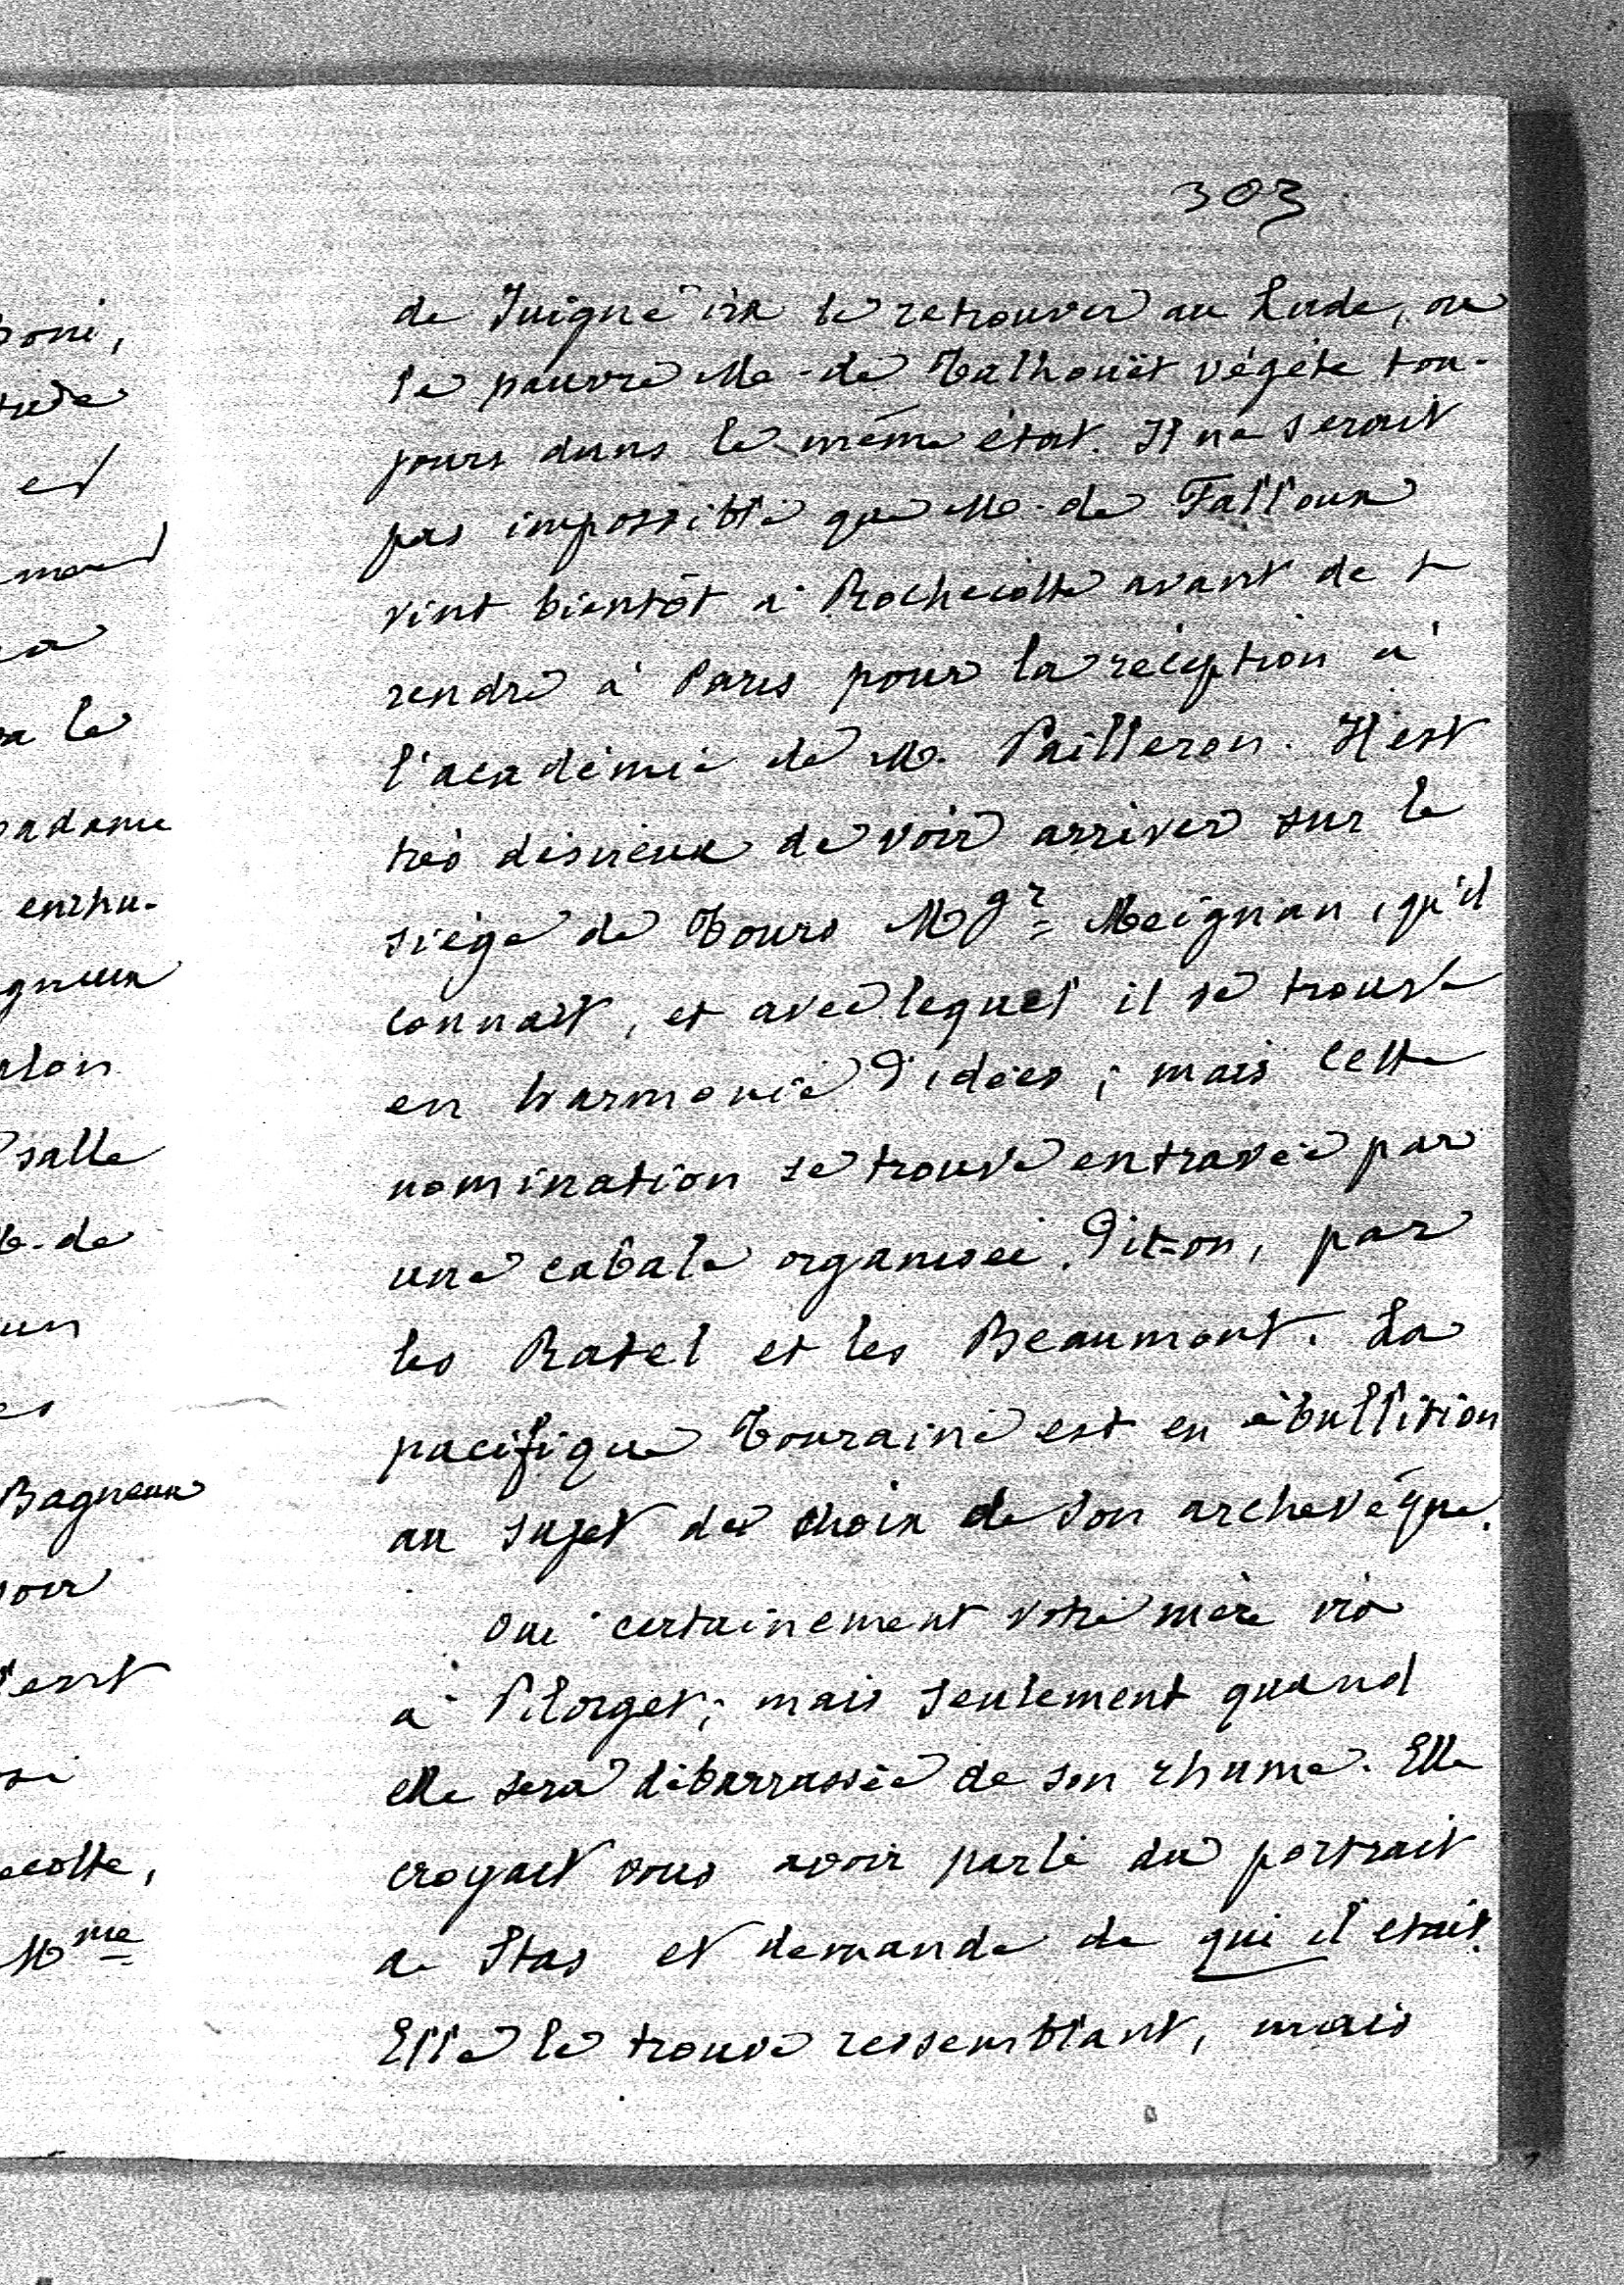 303
de Juigné ira le retrouver au Lude, ou
le pauvre M. de Talhouët végète tou-
jours dans le même état. Il ne serait
pas impossible que M. de Falloux
vint bientôt à Rochecotte avant de se
rendre à Paris pour la réception à
l'académie de M. Pailleron. Il est
très désireux de voir arriver sur le
siège de Tours Mgr Meignan, qu'il
connait, et avec lequel il se trouve
en harmonie d'idées ; mais cette
nomination se trouve entravée par
une cabale organisée, dit-on, par
les Ratel et les Beaumont. La
pacifique Touraine est en ébullition
au sujet du choix de son archevêque.
Oui certainement votre mère ira
à Pilorget ; mais seulement quand
elle sera débarrassée de son rhume. Elle
croyait vous avoir parlé du portrait
de Stas et demande de qui il etait.
Elle le trouve ressemblant, mais
boni,
et
a le
madame
enthu-
gneux
salle
de
un
Bagneux
soir
ecotte,
Mme